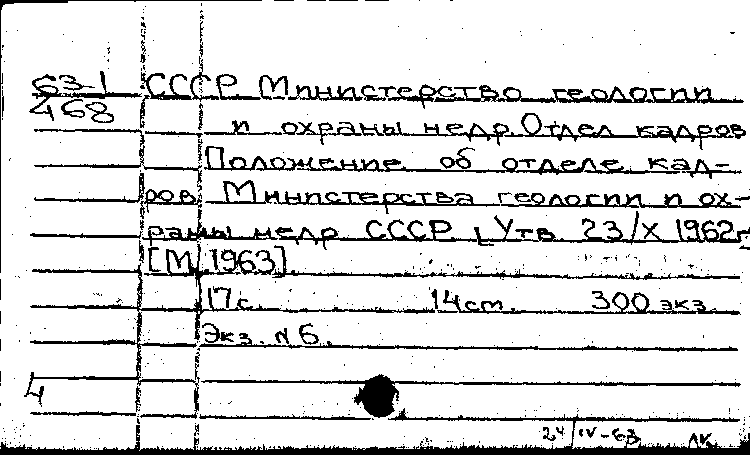 63-1 СССР. Министерство геологии
468 и охраны недр. Отдел кадров
Положение об отделе кад-
ров Министерства геологии и ох-
раны недр СССР. [Утв. 23/X 1962г.
[М., 1963].
17 с. 14 см. 300 экз.
Экз. N 6.
4
24/IV-63 ЛК